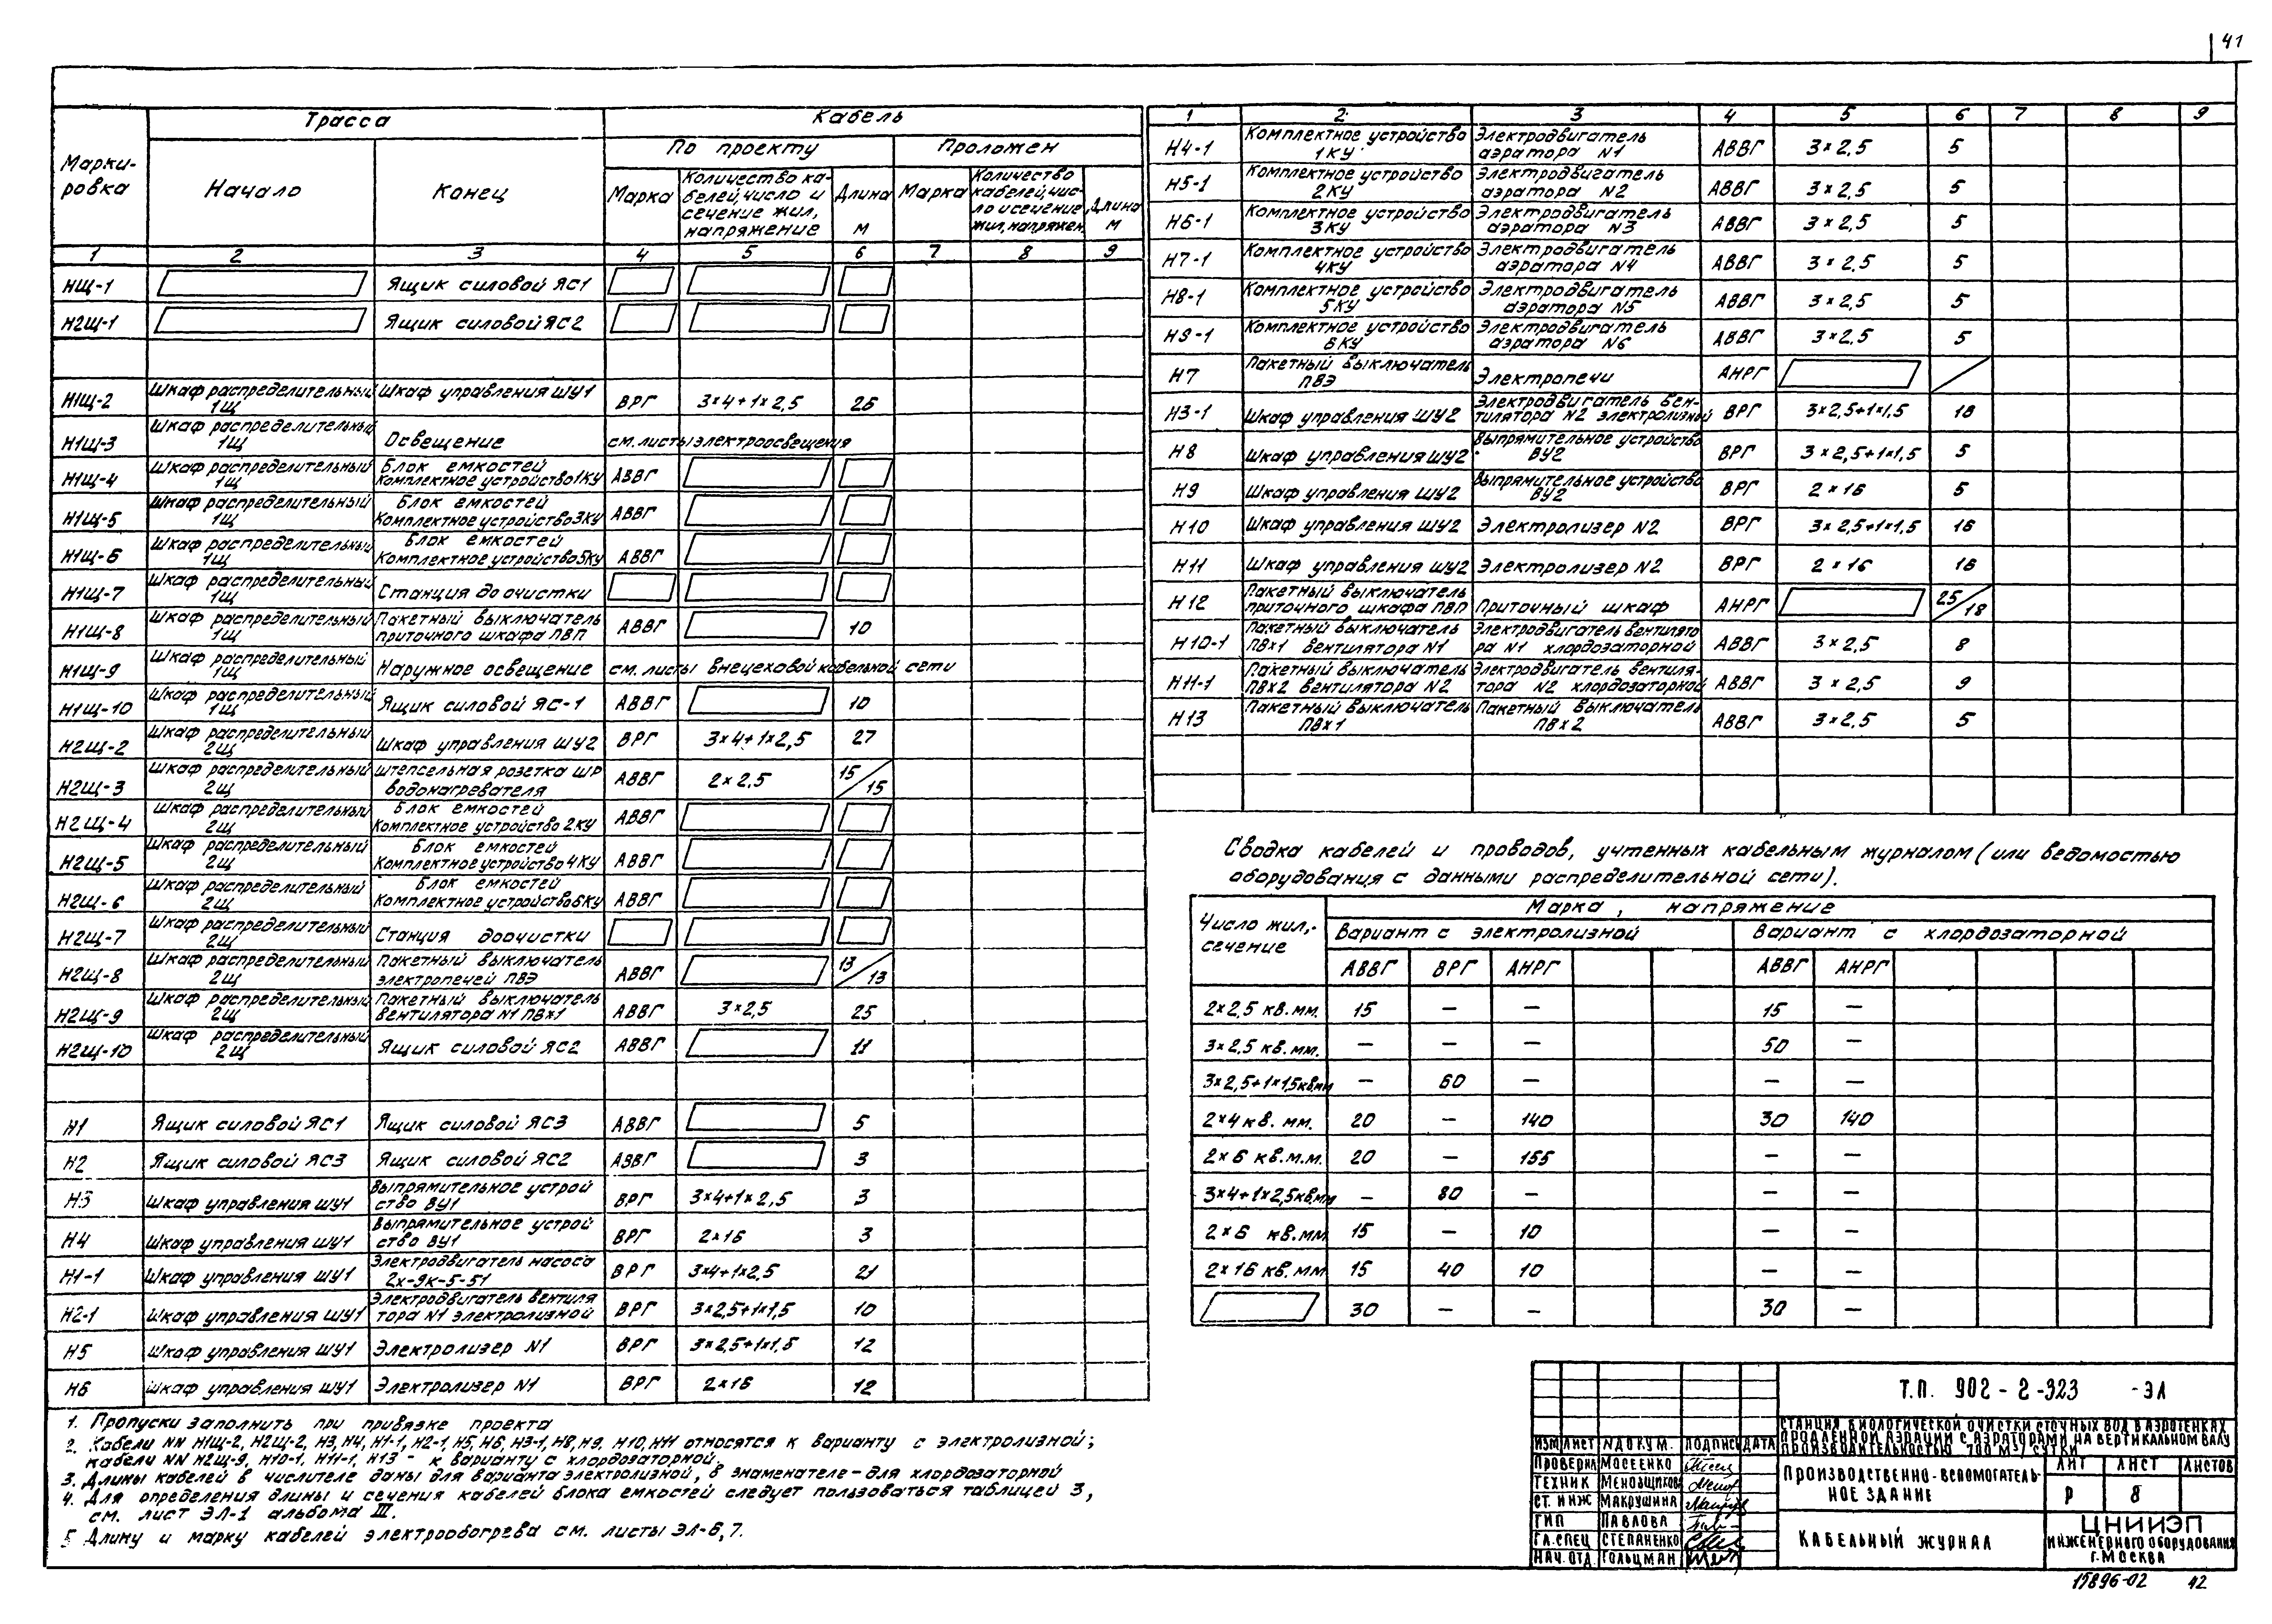 41
Марки-
ровка
Трасса
Кабель
Начало
Конец
По проекту
Проложен
Марка
Количество ка-
белей, число и
сечение жил,
напряжение
Длина
м
Марка
Количество
кабелей, чис-
ло и сечение
жил, напряжен.
Длина
м
1 2 3 4 5 6 7 8 9
НЩ-1 Ящик силовой ЯС1
Н2Щ-1 Ящик силовой ЯС2
Н1Щ-2 Шкаф распределительный 1Щ Шкаф управления ШУ1 ВРГ 3×4+1×2,5 26
Н1Щ-3 Шкаф распределительный 1Щ Освещение см. листы электроосвещения
Н1Щ-4 Шкаф распределительный 1Щ Блок емкостей Комплектное устройство 1КУ АВВГ
Н1Щ-5 Шкаф распределительный 1Щ Блок емкостей Комплектное устройство 3КУ АВВГ
Н1Щ-6 Шкаф распределительный 1Щ Блок емкостей Комплектное устройство 5КУ АВВГ
Н1Щ-7 Шкаф распределительный 1Щ Станция доочистки
Н1Щ-8 Шкаф распределительный 1Щ Пакетный выключатель приточного шкафа ПВП АВВГ 10
Н1Щ-9 Шкаф распределительный 1Щ Наружное освещение см. листы внецеховой кабельной сети
Н1Щ-10 Шкаф распределительный 1Щ Ящик силовой ЯС-1 АВВГ 10
Н2Щ-2 Шкаф распределительный 2Щ Шкаф управления ШУ2 ВРГ 3×4+1×2,5 27
Н2Щ-3 Шкаф распределительный 2Щ штепсельная розетка ШР водонагревателя АВВГ 2×2,5 15/15
Н2Щ-4 Шкаф распределительный 2Щ Блок емкостей Комплектное устройство 2КУ АВВГ
Н2Щ-5 Шкаф распределительный 2Щ Блок емкостей Комплектное устройство 4КУ АВВГ
Н2Щ-6 Шкаф распределительный 2Щ Блок емкостей Комплектное устройство 6КУ АВВГ
Н2Щ-7 Шкаф распределительный 2Щ Станция доочистки
Н2Щ-8 Шкаф распределительный 2Щ Пакетный выключатель электропечей ПВЭ АВВГ 13/13
Н2Щ-9 Шкаф распределительный 2Щ Пакетный выключатель вентилятора N1 ПВх1 АВВГ 3×2,5 25
Н2Щ-10 Шкаф распределительный 2Щ Ящик силовой ЯС2 АВВГ 11
Н1 Ящик силовой ЯС1 Ящик силовой ЯС3 АВВГ 5
Н2 Ящик силовой ЯС3 Ящик силовой ЯС2 АВВГ 3
Н3 Шкаф управления ШУ1 Выпрямительное устрой ство ВУ1 ВРГ 3×4+1×2,5 3
Н4 Шкаф управления ШУ1 Выпрямительное устрой ство ВУ1 ВРГ 2×16 3
Н1-1 Шкаф управления ШУ1 Электродвигатель насоса 2х-9к-5-51 ВРГ 3×4+1×2,5 21
Н2-1 Шкаф управления ШУ1 Электродвигатель вентиля тора N1 электролизной ВРГ 3×2,5+1×1,5 10
Н5 Шкаф управления ШУ1 Электролизер N1 ВРГ 3×2,5+1×1,5 12
Н6 Шкаф управления ШУ1 Электролизер N1 ВРГ 2×16 12
1. Пропуски заполнить при привязке проекта
2. Кабели NN Н1Щ-2, Н2Щ-2, Н3, Н4, Н1-1, Н2-1, Н5, Н6, Н3-1, Н8, Н9, Н10, Н11 относятся к варианту с электролизной;
кабели NN Н2Щ-9, Н10-1, Н11-1, Н13 - к варианту с хлордозаторной.
3. Длины кабелей в числителе даны для варианта электролизной, в знаменателе - для хлордозаторной
4. Для определения длины и сечения кабелей блока емкостей следует пользоваться таблицей 3,
см. лист ЭЛ-1 альбома III.
5 Длину и марку кабелей электрообогрева см. листы ЭЛ-6, 7.
1 2 3 4 5 6 7 8 9
Н4-1 Комплектное устройство 1КУ Электродвигатель аэратора N1 АВВГ 3×2,5 5
Н5-1 Комплектное устройство 2КУ Электродвигатель аэратора N2 АВВГ 3×2,5 5
Н6-1 Комплектное устройство 3КУ Электродвигатель аэратора N3 АВВГ 3×2,5 5
Н7-1 Комплектное устройство 4КУ Электродвигатель аэратора N4 АВВГ 3×2,5 5
Н8-1 Комплектное устройство 5КУ Электродвигатель аэратора N5 АВВГ 3×2,5 5
Н9-1 Комплектное устройство 6КУ Электродвигатель аэратора N6 АВВГ 3×2,5 5
Н7 Пакетный выключатель ПВЭ Электропечи АНРГ
Н3-1 Шкаф управления ШУ2 Электродвигатель вен- тилятора N2 электролизной ВРГ 3×2,5+1×1,5 18
Н8 Шкаф управления ШУ2 Выпрямительное устройство ВУ2 ВРГ 3×2,5+1×1,5 5
Н9 Шкаф управления ШУ2 Выпрямительное устройство ВУ2 ВРГ 2×16 5
Н10 Шкаф управления ШУ2 Электролизер N2 ВРГ 3×2,5+1×1,5 16
Н11 Шкаф управления ШУ2 Электролизер N2 ВРГ 2×16 16
Н12 Пакетный выключатель приточного шкафа ПВП Приточный шкаф АНРГ 25/18
Н10-1 Пакетный выключатель ПВх1 вентилятора N1 Электродвигатель вентилято ра N1 хлордозаторной АВВГ 3×2,5 8
Н11-1 Пакетный выключатель ПВх2 вентилятора N2 Электродвигатель вентиля- тора N2 хлордозаторной АВВГ 3×2,5 9
Н13 Пакетный выключатель ПВх1 Пакетный выключатель ПВх2 АВВГ 3×2,5 5
Сводка кабелей и проводов, учтенных кабельным журналом (или ведомостью
оборудования с данными распределительной сети).
Число жил,-
сечение
Марка, напряжение
Вариант с электролизной
Вариант с хлордозаторной
АВВГ ВРГ АНРГ АВВГ АНРГ
2×2,5 кв.мм. 15 — — 15 —
3×2,5 кв.мм. — — — 50 —
3×2,5+1×1,5кв.мм — 60 — — —
2×4 кв. мм. 20 — 140 30 140
2×6 кв.м.м. 20 — 155 — —
3×4+1×2,5кв.мм — 80 — — —
2×6 кв.мм. 15 — 10 — —
2×16 кв.мм. 15 40 10 — —
30 — — 30 —
Т.П. 902-2-323 -ЭЛ
СТАНЦИЯ БИОЛОГИЧЕСКОЙ ОЧИСТКИ СТОЧНЫХ ВОД В АЭРОТЕНКАХ
ПРОДЛЕННОЙ АЭРАЦИИ С АЭРАТОРАМИ НА ВЕРТИКАЛЬНОМ ВАЛУ
ПРОИЗВОДИТЕЛЬНОСТЬЮ 700 М³/СУТКИ
ИЗМ ЛИСТ N ДОКУМ. ПОДПИСЬ ДАТА
ПРОВЕРИЛ МОСЕЕНКО
ТЕХНИК МЕНОВЩИКОВ
СТ. ИНЖ МАКРУШИНА
ГИП ПАВЛОВА
ГЛ. СПЕЦ СТЕПАНЕНКО
НАЧ. ОТД. ГОЛЬЦМАН
ПРОИЗВОДСТВЕННО-ВСПОМОГАТЕЛЬ-
НОЕ ЗДАНИЕ
ЛИТ ЛИСТ ЛИСТОВ
Р 8
КАБЕЛЬНЫЙ ЖУРНАЛ
ЦНИИЭП
ИНЖЕНЕРНОГО ОБОРУДОВАНИЯ
Г. МОСКВА
15896-02 42